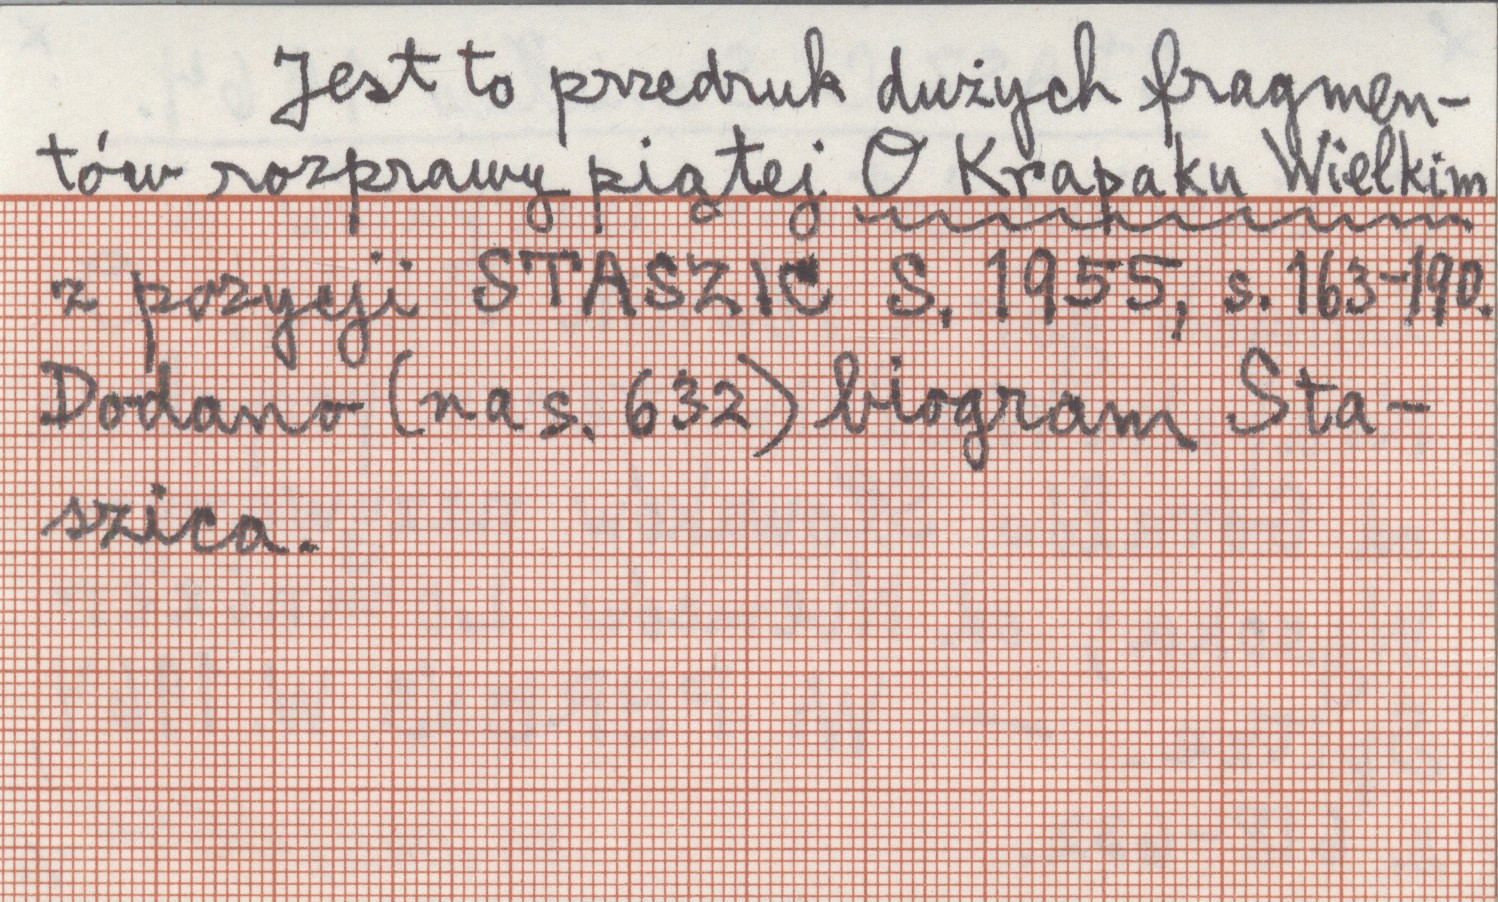 Jest to przedruk dużych fragmen-
tów rozprawy piątej O Krapaku Wielkim
z pozycji STASZIC S, 1955, s. 163-190.
Dodano (na s. 632) biogram Sta-
szica.